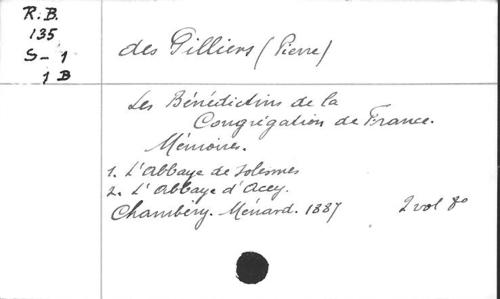 R.B.
135
S-1
1 B
des Pilliers (Pierre)
Les Bénédictins de la
Congrégation de France.
Mémoires.
1. L'abbaye de Solesmes
2. L'abbaye d'Acey.
Chambéry. Ménard. 1887 2 vol 8o